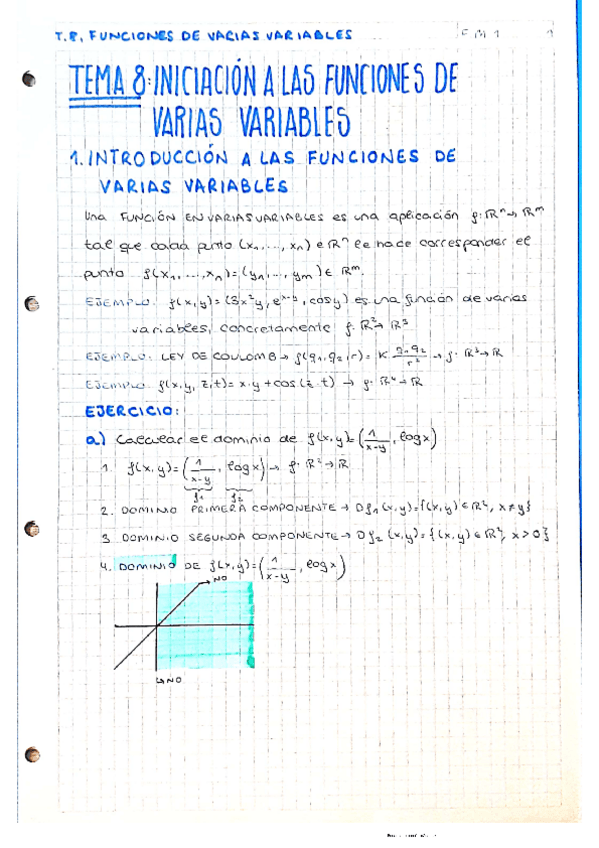 T.8. FUNCIONES DE VARIAS VARIABLES FM1 1
TEMA 8: INICIACIÓN A LAS FUNCIONES DE
VARIAS VARIABLES
1. INTRODUCCIÓN A LAS FUNCIONES DE
VARIAS VARIABLES
Una FUNCIÓN EN VARIAS VARIABLES es una aplicación f: ℝⁿ→ℝᵐ
tal que cada punto (x₁,..., xₙ) ∈ ℝⁿ le hace corresponder el
punto f(x₁,..., xₙ)=(y₁,..., yₘ) ∈ ℝᵐ.
EJEMPLO: f(x,y)=(3x²y, eˣ⁻ʸ, cosy) es una función de varias
variables, concretamente f: ℝ²→ℝ³
EJEMPLO: LEY DE COULOMB → f(q₁,q₂,r)= K q₁q₂/r² → f: ℝ³→ℝ
EJEMPLO: f(x,y,z,t)= x·y+cos(z·t) → f: ℝ⁴→ℝ
EJERCICIO:
a) Calcular el dominio de f(x,y)=(1/x-y, logx)
1. f(x,y)=(1/x-y, logx) → f: ℝ²→ℝ
f₁ f₂
2. DOMINIO PRIMERA COMPONENTE → Df₁(x,y)={(x,y)∈ℝ², x≠y}
3. DOMINIO SEGUNDA COMPONENTE → Df₂(x,y)={(x,y)∈ℝ², x>0}
4. DOMINIO DE f(x,y)=(1/x-y, logx)
→NO
↳NO